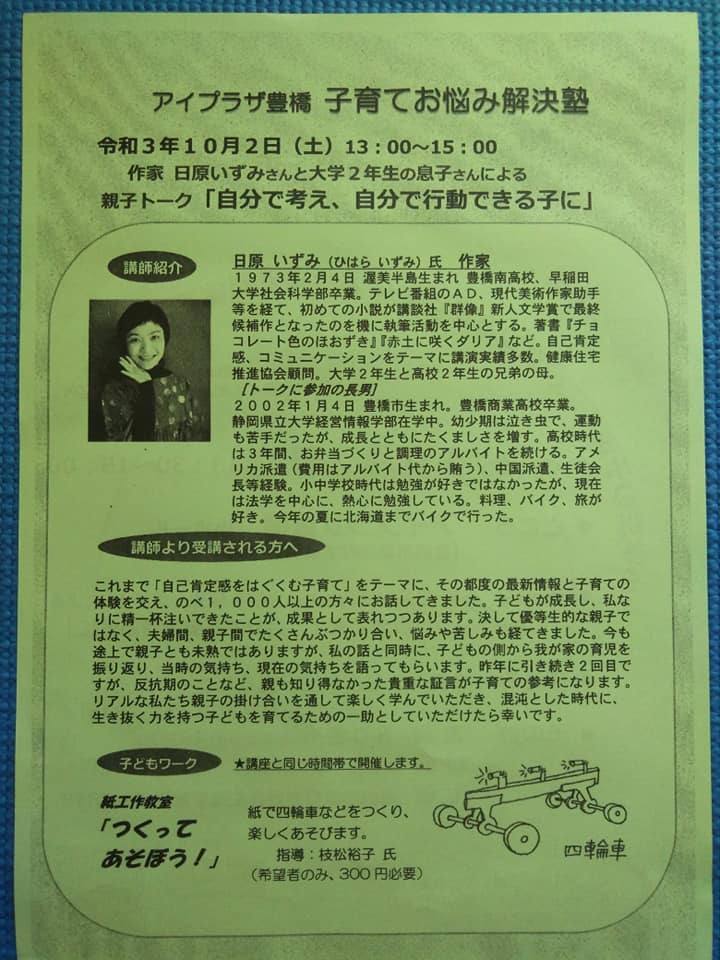 アイプラザ豊橋 子育てお悩み解決塾
令和3年10月2日（土）13：00～15：00
作家 日原いずみさんと大学2年生の息子さんによる
親子トーク「自分で考え、自分で行動できる子に」
講師紹介
日原 いずみ（ひはら いずみ）氏 作家
1973年2月4日 渥美半島生まれ 豊橋南高校、早稲田
大学社会科学部卒業。テレビ番組のAD、現代美術作家助手
等を経て、初めての小説が講談社『群像』新人文学賞で最終
候補作となったのを機に執筆活動を中心とする。著書『チョ
コレート色のほおずき』『赤土に咲くダリア』など。自己肯定
感、コミュニケーションをテーマに講演実績多数。健康住宅
推進協会顧問。大学2年生と高校2年生の兄弟の母。
［トークに参加の長男］
2002年1月4日 豊橋市生まれ。豊橋商業高校卒業。
静岡県立大学経営情報学部在学中。幼少期は泣き虫で、運動
も苦手だったが、成長とともにたくましさを増す。高校時代
は3年間、お弁当づくりと調理のアルバイトを続ける。アメ
リカ派遣（費用はアルバイト代から賄う）、中国派遣、生徒会
長等経験。小中学校時代は勉強が好きではなかったが、現在
は法学を中心に、熱心に勉強している。料理、バイク、旅が
好き。今年の夏に北海道までバイクで行った。
講師より受講される方へ
これまで「自己肯定感をはぐくむ子育て」をテーマに、その都度の最新情報と子育ての
体験を交え、のべ1，000人以上の方々にお話してきました。子どもが成長し、私な
りに精一杯注いできたことが、成果として表れつつあります。決して優等生的な親子で
はなく、夫婦間、親子間でたくさんぶつかり合い、悩みや苦しみも経てきました。今も
途上で親子とも未熟ではありますが、私の話と同時に、子どもの側から我が家の育児を
振り返り、当時の気持ち、現在の気持ちを語ってもらいます。昨年に引き続き2回目で
すが、反抗期のことなど、親も知り得なかった貴重な証言が子育ての参考になります。
リアルな私たち親子の掛け合いを通して楽しく学んでいただき、混沌とした時代に、
生き抜く力を持つ子どもを育てるための一助としていただけたら幸いです。
子どもワーク ★講座と同じ時間帯で開催します。
紙工作教室
「つくって
あそぼう！」
紙で四輪車などをつくり、
楽しくあそびます。
指導：枝松裕子 氏
（希望者のみ、300円必要）
四輪車